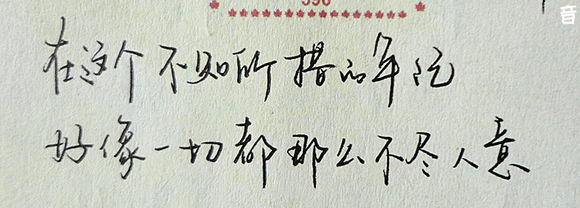 590
音
在这个不知所措的年纪
好像一切都那么不尽人意